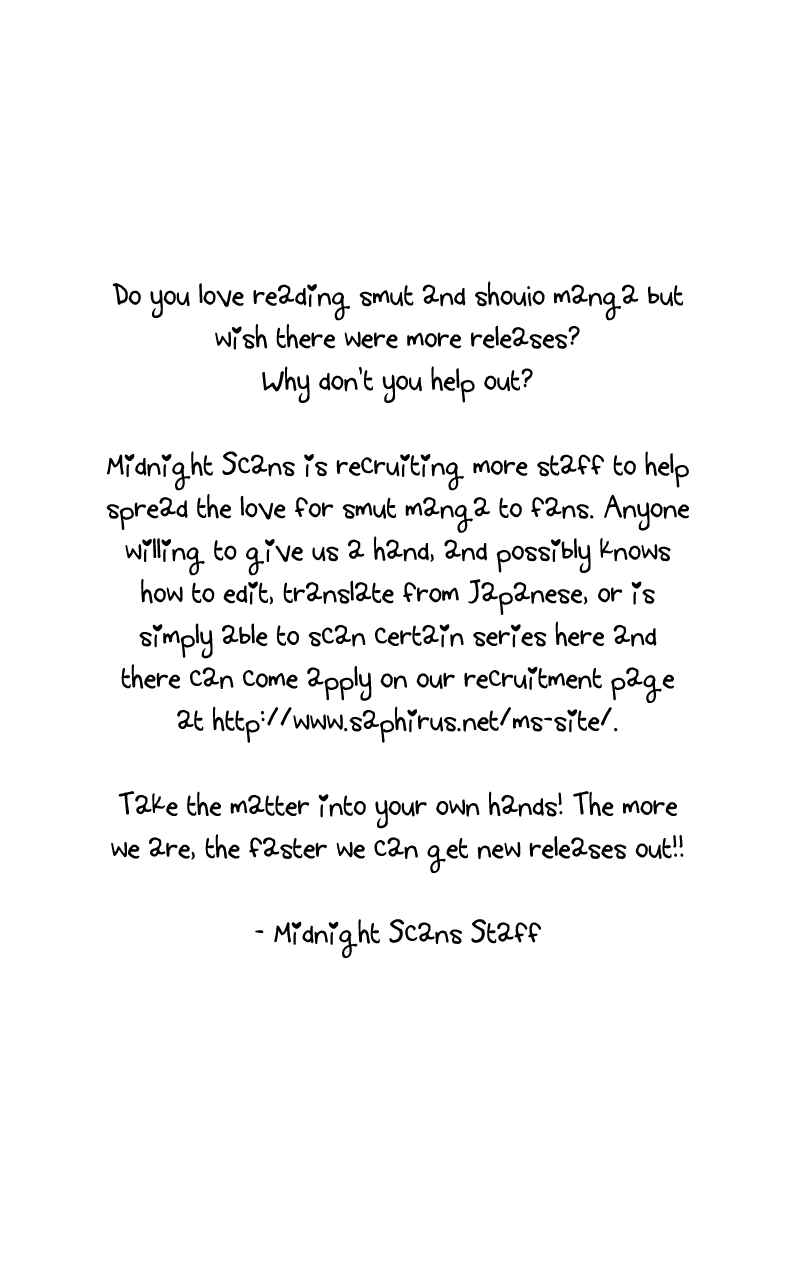 Do you love reading smut and shouio manga but
wish there were more releases?
Why don't you help out?
Midnight Scans is recruiting more staff to help
spread the love for smut manga to fans. Anyone
willing to give us a hand, and possibly knows
how to edit, translate from Japanese, or is
simply able to scan certain series here and
there can come apply on our recruitment page
at http://www.saphirus.net/ms-site/.
Take the matter into your own hands! The more
we are, the faster we can get new releases out!!
- Midnight Scans Staff